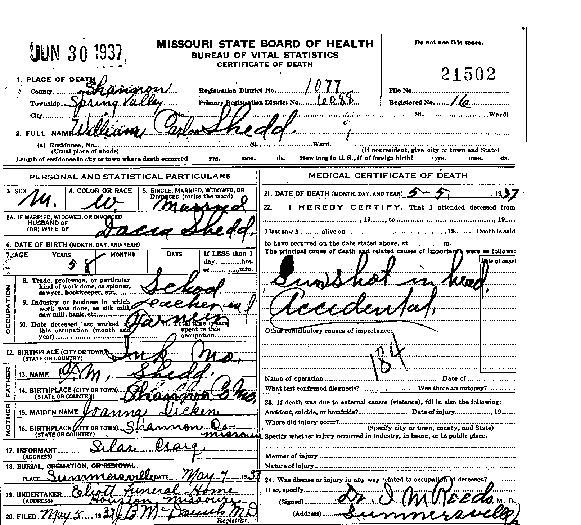 JUN 30 1937
MISSOURI STATE BOARD OF HEALTH
BUREAU OF VITAL STATISTICS
CERTIFICATE OF DEATH
Do not use this space.
21502
1. PLACE OF DEATH
County Shannon Registration District No. 1077 File No.
Township Spring Valley Primary Registration District No. Registered No. 16
City No. St. Ward)
2. FULL NAME William Shedd
(a) Residence, No. St. Ward.
(Usual place of abode) (If nonresident, give city or town and State)
Length of residence in city or town where death occurred yrs. mos. ds. How long in U. S., if of foreign birth? yrs. mos. ds.
PERSONAL AND STATISTICAL PARTICULARS
3. SEX M. 4. COLOR OR RACE W 5. SINGLE, MARRIED, WIDOWED, OR DIVORCED (write the word) Married
5A. IF MARRIED, WIDOWED, OR DIVORCED
HUSBAND OF
(OR) WIFE OF Shedd
6. DATE OF BIRTH (MONTH, DAY, AND YEAR)
7. AGE YEARS MONTHS DAYS If LESS than 1
day, hrs.
or min.
OCCUPATION
8. Trade, profession, or particular kind of work done, as spinner, sawyer, bookkeeper, etc. School
9. Industry or business in which work was done, as silk mill, saw mill, bank, etc. Teacher and
10. Date deceased last worked at this occupation (month and year) Farmer
12. BIRTHPLACE (CITY OR TOWN) Mo.
(STATE OR COUNTRY)
FATHER
13. NAME Shedd
14. BIRTHPLACE (CITY OR TOWN) Shannon Co Mo
(STATE OR COUNTRY)
MOTHER
15. MAIDEN NAME Joanna
16. BIRTHPLACE (CITY OR TOWN) Shannon Co
(STATE OR COUNTRY) Missouri
17. INFORMANT Silas Craig
(ADDRESS)
18. BURIAL, CREMATION, OR REMOVAL
PLACE Summersville DATE May 7 1937
19. UNDERTAKER Elliott Funeral Home
(ADDRESS) Houston Missouri
20. FILED May 5 1937 M.D.
Registrar.
MEDICAL CERTIFICATE OF DEATH
21. DATE OF DEATH (MONTH, DAY, AND YEAR) 5-5 1937
22. I HEREBY CERTIFY, That I attended deceased from
, 19 , to , 19
I last saw h alive on , 19 Death is said
to have occurred on the date stated above, at m.
The principal cause of death and related causes of importance were as follows:
Date of onset
Gunshot in head
Accidental
Other contributory causes of importance:
184
Name of operation Date of
What test confirmed diagnosis? Was there an autopsy?
23. If death was due to external causes (violence), fill in also the following:
Accident, suicide, or homicide? Date of injury , 19
Where did injury occur?
(Specify city or town, county, and State)
Specify whether injury occurred in industry, in home, or in public place.
Manner of injury
Nature of injury
24. Was disease or injury in any way related to occupation of deceased?
If so, specify
(Signed) Dr.
(Address) Summersville